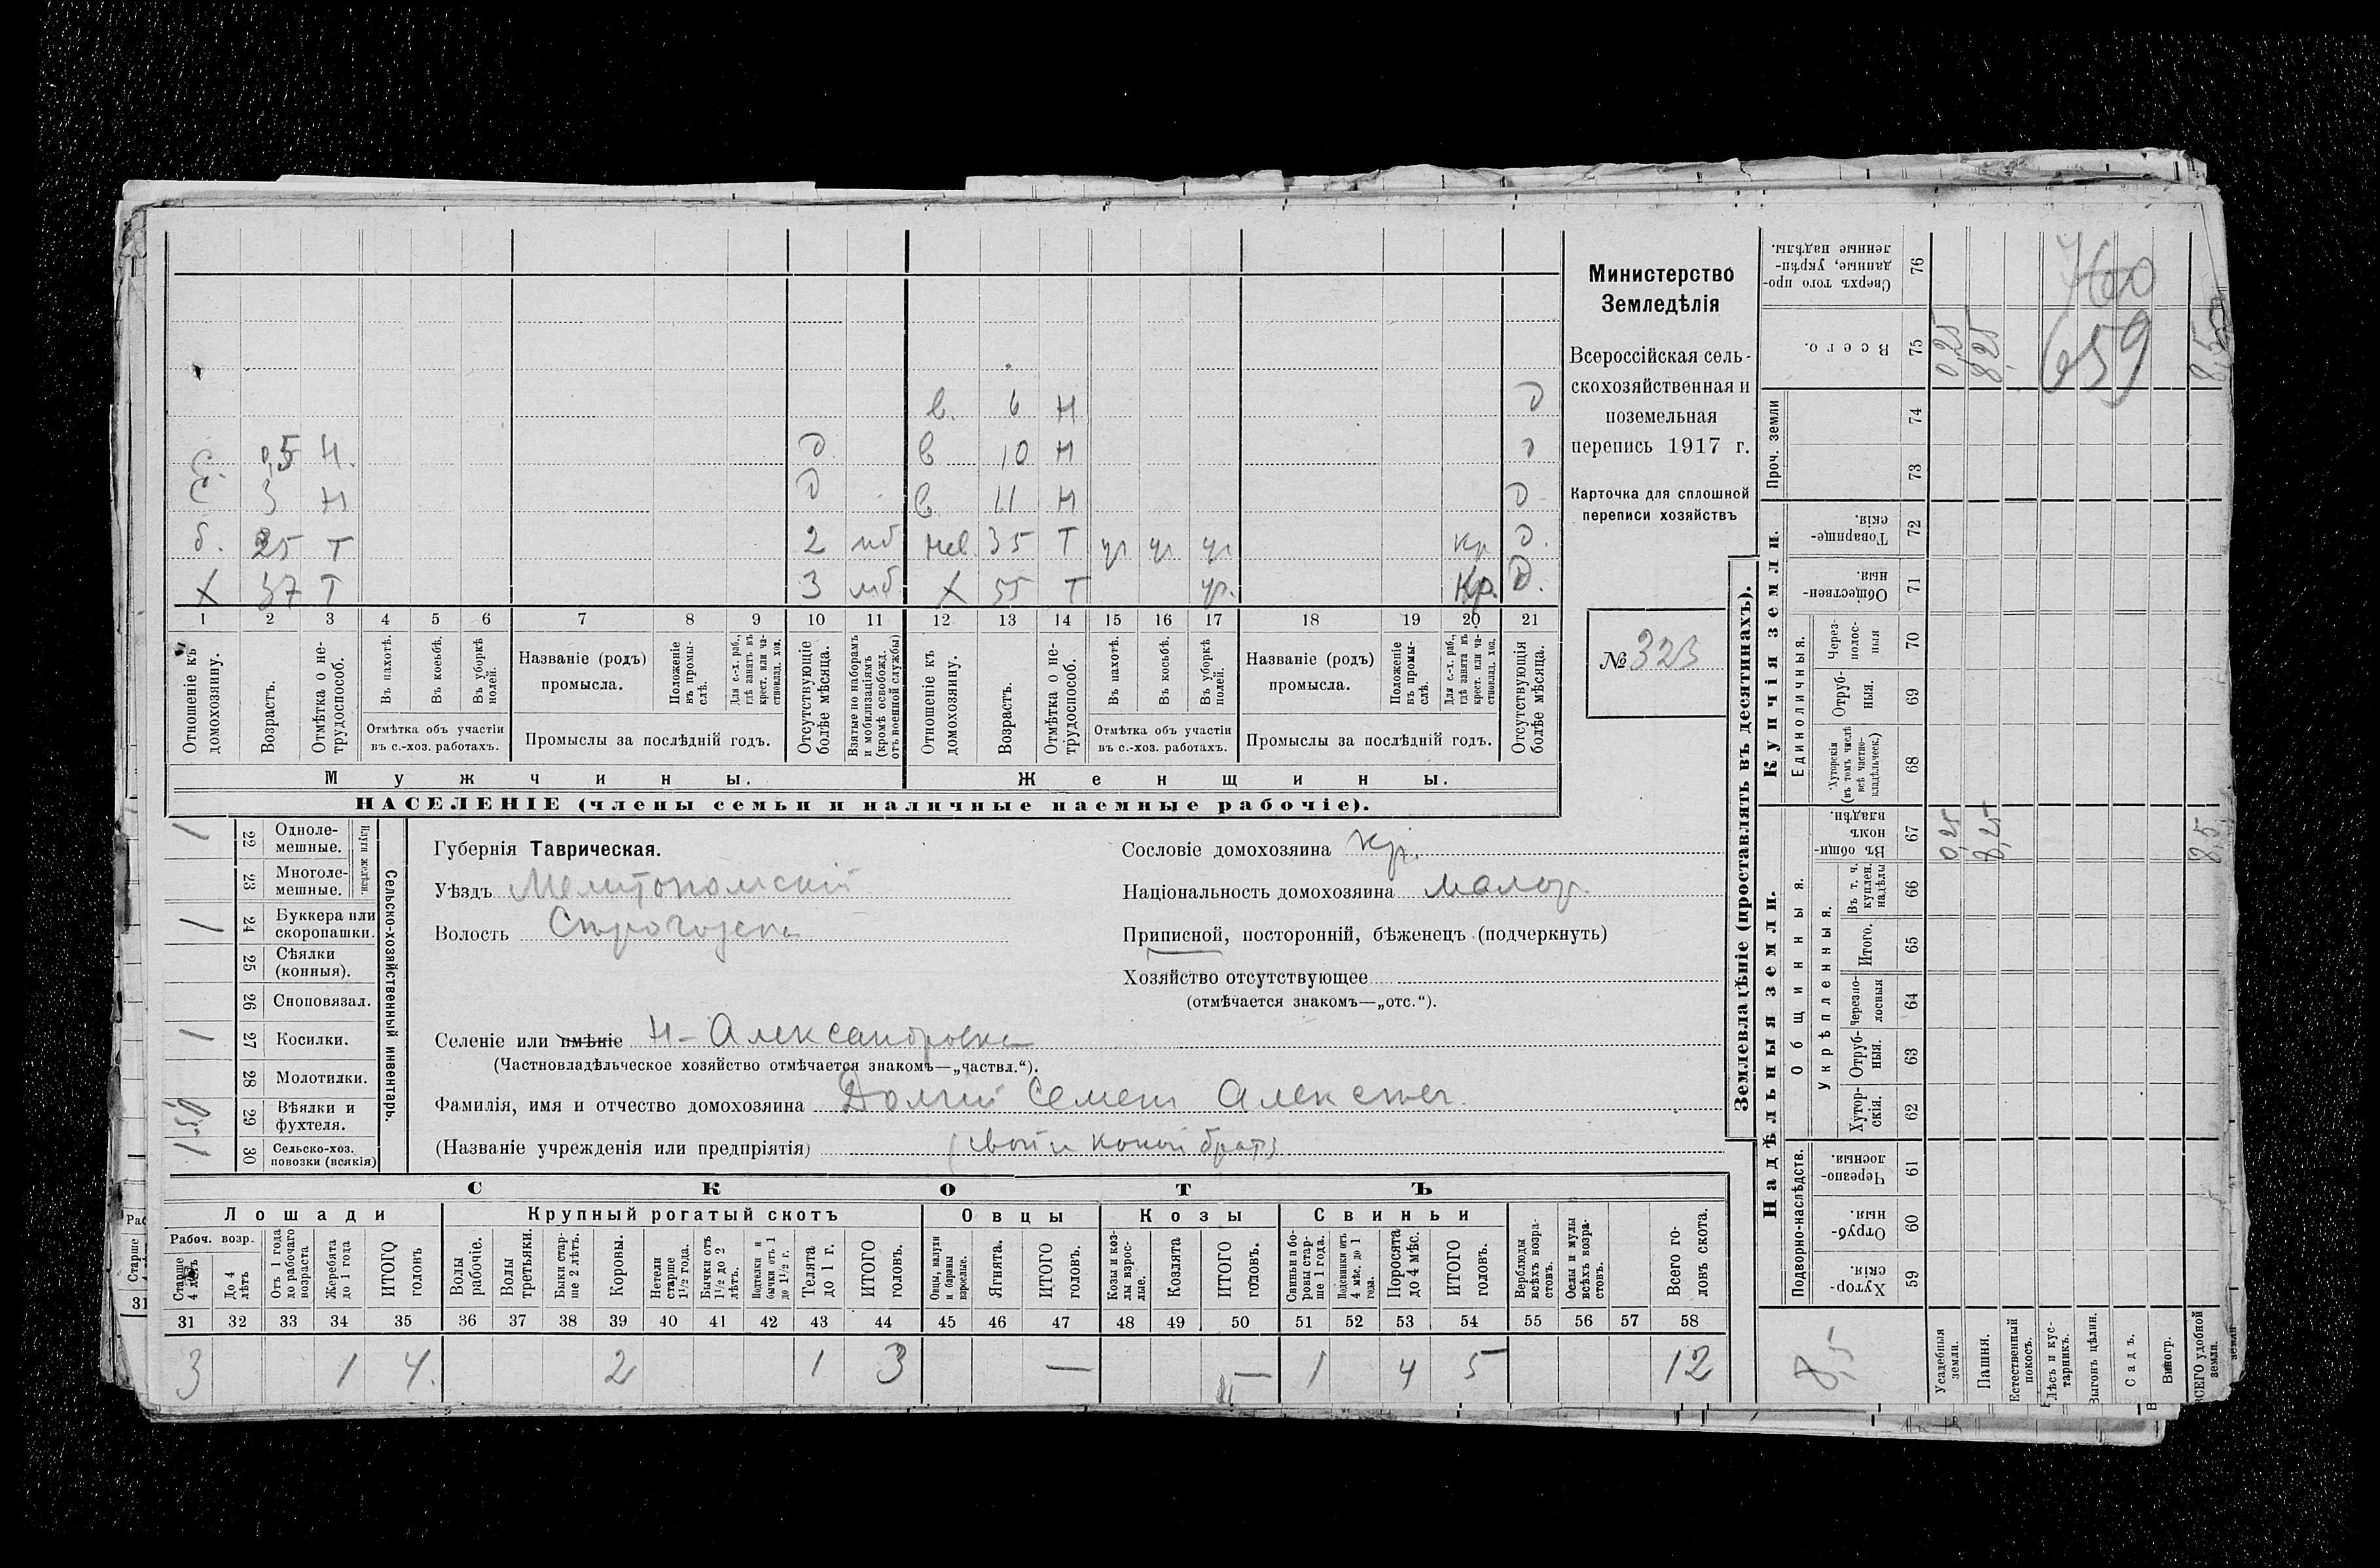 в. 6 Н D
с. 0,5 Н. D в 10 Н D
с. 3 Н D в 11 Н D
б. 25 Т 2 мб нев 35 Т ур ур ур кр D.
Х 37 Т 3 мб Х 55 Т ур. Кр. D.
1 2 3 4 5 6 7 8 9 10 11 12 13 14 15 16 17 18 19 20 21
Отношеніе къ домохозяину.
Возрастъ.
Отмѣтка о не-трудоспособ.
Въ пахотѣ.
Въ косьбѣ.
Въ уборкѣ полей.
Отмѣтка объ участіи
въ с.-хоз. работахъ.
Названіе (родъ)
промысла.
Положеніе въ промы-слѣ.
Для с.-х. раб., гдѣ занятъ въ крест. или ча-стновлад. хоз.
Промыслы за послѣдній годъ.
Отсутствующіе болѣе мѣсяца.
Взятые по наборамъ и мобилизаціямъ (кромѣ освобожд. отъ военной службы)
Отношеніе къ домохозяину.
Возрастъ.
Отмѣтка о не-трудоспособ.
Въ пахотѣ.
Въ косьбѣ.
Въ уборкѣ полей.
Отмѣтка объ участіи
въ с.-хоз. работахъ.
Названіе (родъ)
промысла.
Положеніе въ промы-слѣ.
Для с.-х. раб., гдѣ занята въ крест. или ча-стновлад. хоз.
Промыслы за послѣдній годъ.
Отсутствующія болѣе мѣсяца.
Мужчины. Женщины.
НАСЕЛЕНІЕ (члены семьи и наличные наемные рабочіе).
Министерство
Земледѣлія
Всероссійская сель-
скохозяйственная и
поземельная
перепись 1917 г.
Карточка для сплошной
переписи хозяйствъ
№ 323
Сельско-хозяйственный инвентарь.
Плуги желѣзн.
1 22 Одноле-мешные.
23 Многоле-мешные.
1 24 Буккера или скоропашки.
25 Сѣялки (конныя).
26 Сноповязал.
1 27 Косилки.
28 Молотилки.
29 Вѣялки и фухтеля.
30 Сельско-хоз. повозки (всякія)
Губернія Таврическая.
Уѣздъ Мелитопольскій
Волость
Сословіе домохозяина кр.
Національность домохозяина малор.
Приписной, посторонній, бѣженецъ (подчеркнуть)
Хозяйство отсутствующее
(отмѣчается знакомъ—„отс.“).
Селеніе или имѣніе Н-Александровка
(Частновладѣльческое хозяйство отмѣчается знакомъ—„частвл.“).
Фамилія, имя и отчество домохозяина Долгій Семенъ Алексеев.
(Названіе учрежденія или предпріятія)
СКОТЪ
Лошади Крупный рогатый скотъ Овцы Козы Свиньи
Рабоч. возр.
Старше 4 лѣтъ
До 4 лѣтъ
Отъ 1 года до рабочаго возраста
Жеребята до 1 года
ИТОГО головъ
Волы рабочіе.
Волы третьяки.
Быки стар-ше 2 лѣтъ.
Коровы.
Нетели старше 1½ года.
Бычки отъ 1½ до 2 лѣтъ.
Подтелки и бычки отъ 1 до 1½ г.
Телята до 1 г.
ИТОГО головъ.
Овцы, валухи и бараны взрослые.
Ягнята.
ИТОГО головъ.
Козы и коз-лы взрос-лые.
Козлята
ИТОГО головъ.
Свиньи и бо-ровы стар-ше 1 года.
Подсвинки отъ 4 мѣс. до 1 года.
Поросята до 4 мѣс.
ИТОГО головъ.
Верблюды всѣхъ возра-стовъ.
Ослы и мулы всѣхъ возра-стовъ.
Всего го-ловъ скота.
31 32 33 34 35 36 37 38 39 40 41 42 43 44 45 46 47 48 49 50 51 52 53 54 55 56 57 58
3 1 4. 2 1 3 — — 1 4 5 12
Землевладѣніе (проставлять въ десятинахъ).
Надѣльныя земли. Купчія земли.
Подворно-наслѣдств.
Общинныя.
Укрѣпленныя.
Единоличныя.
Проч. земли
Хутор-скія. 59
Отруб-ныя. 60
Черезпо-лосныя. 61
Хутор-скія. 62
Отруб-ныя. 63
Черезпо-лосныя 64
Итого. 65
Въ т. ч. куплен. надѣлы 66
Въ общи-номъ владѣн. 67 0,25 8,25 8,5
Хуторскія (въ томъ числѣ всѣ частно-владѣльческ.) 68
Отруб-ныя. 69
Через-полос-ныя 70
Обществен-ныя. 71
Товарище-скія. 72
73
74
Всего. 75 0,25 8,25
Сверхъ того про-данные, укрѣп-ленные надѣлы. 76
659
8,5
Усадебная земли.
Пашня.
Естественный покосъ.
Лѣсъ и кус-тарникъ.
Выгонъ цѣлин.
Садъ.
Виногр.
ВСЕГО удобной земли.